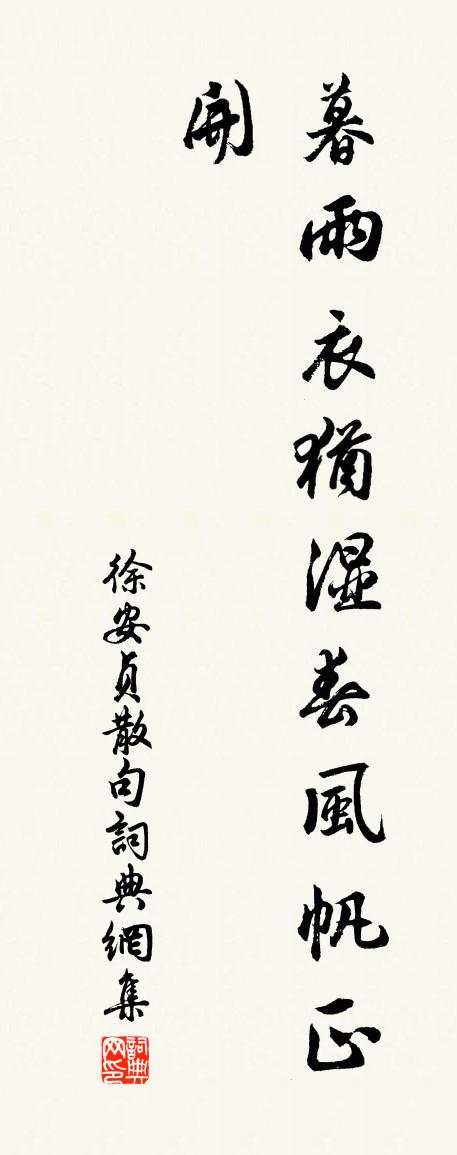 暮雨衣猶濕春風帆正
開
徐安貞散句詞典網集
詞典网印